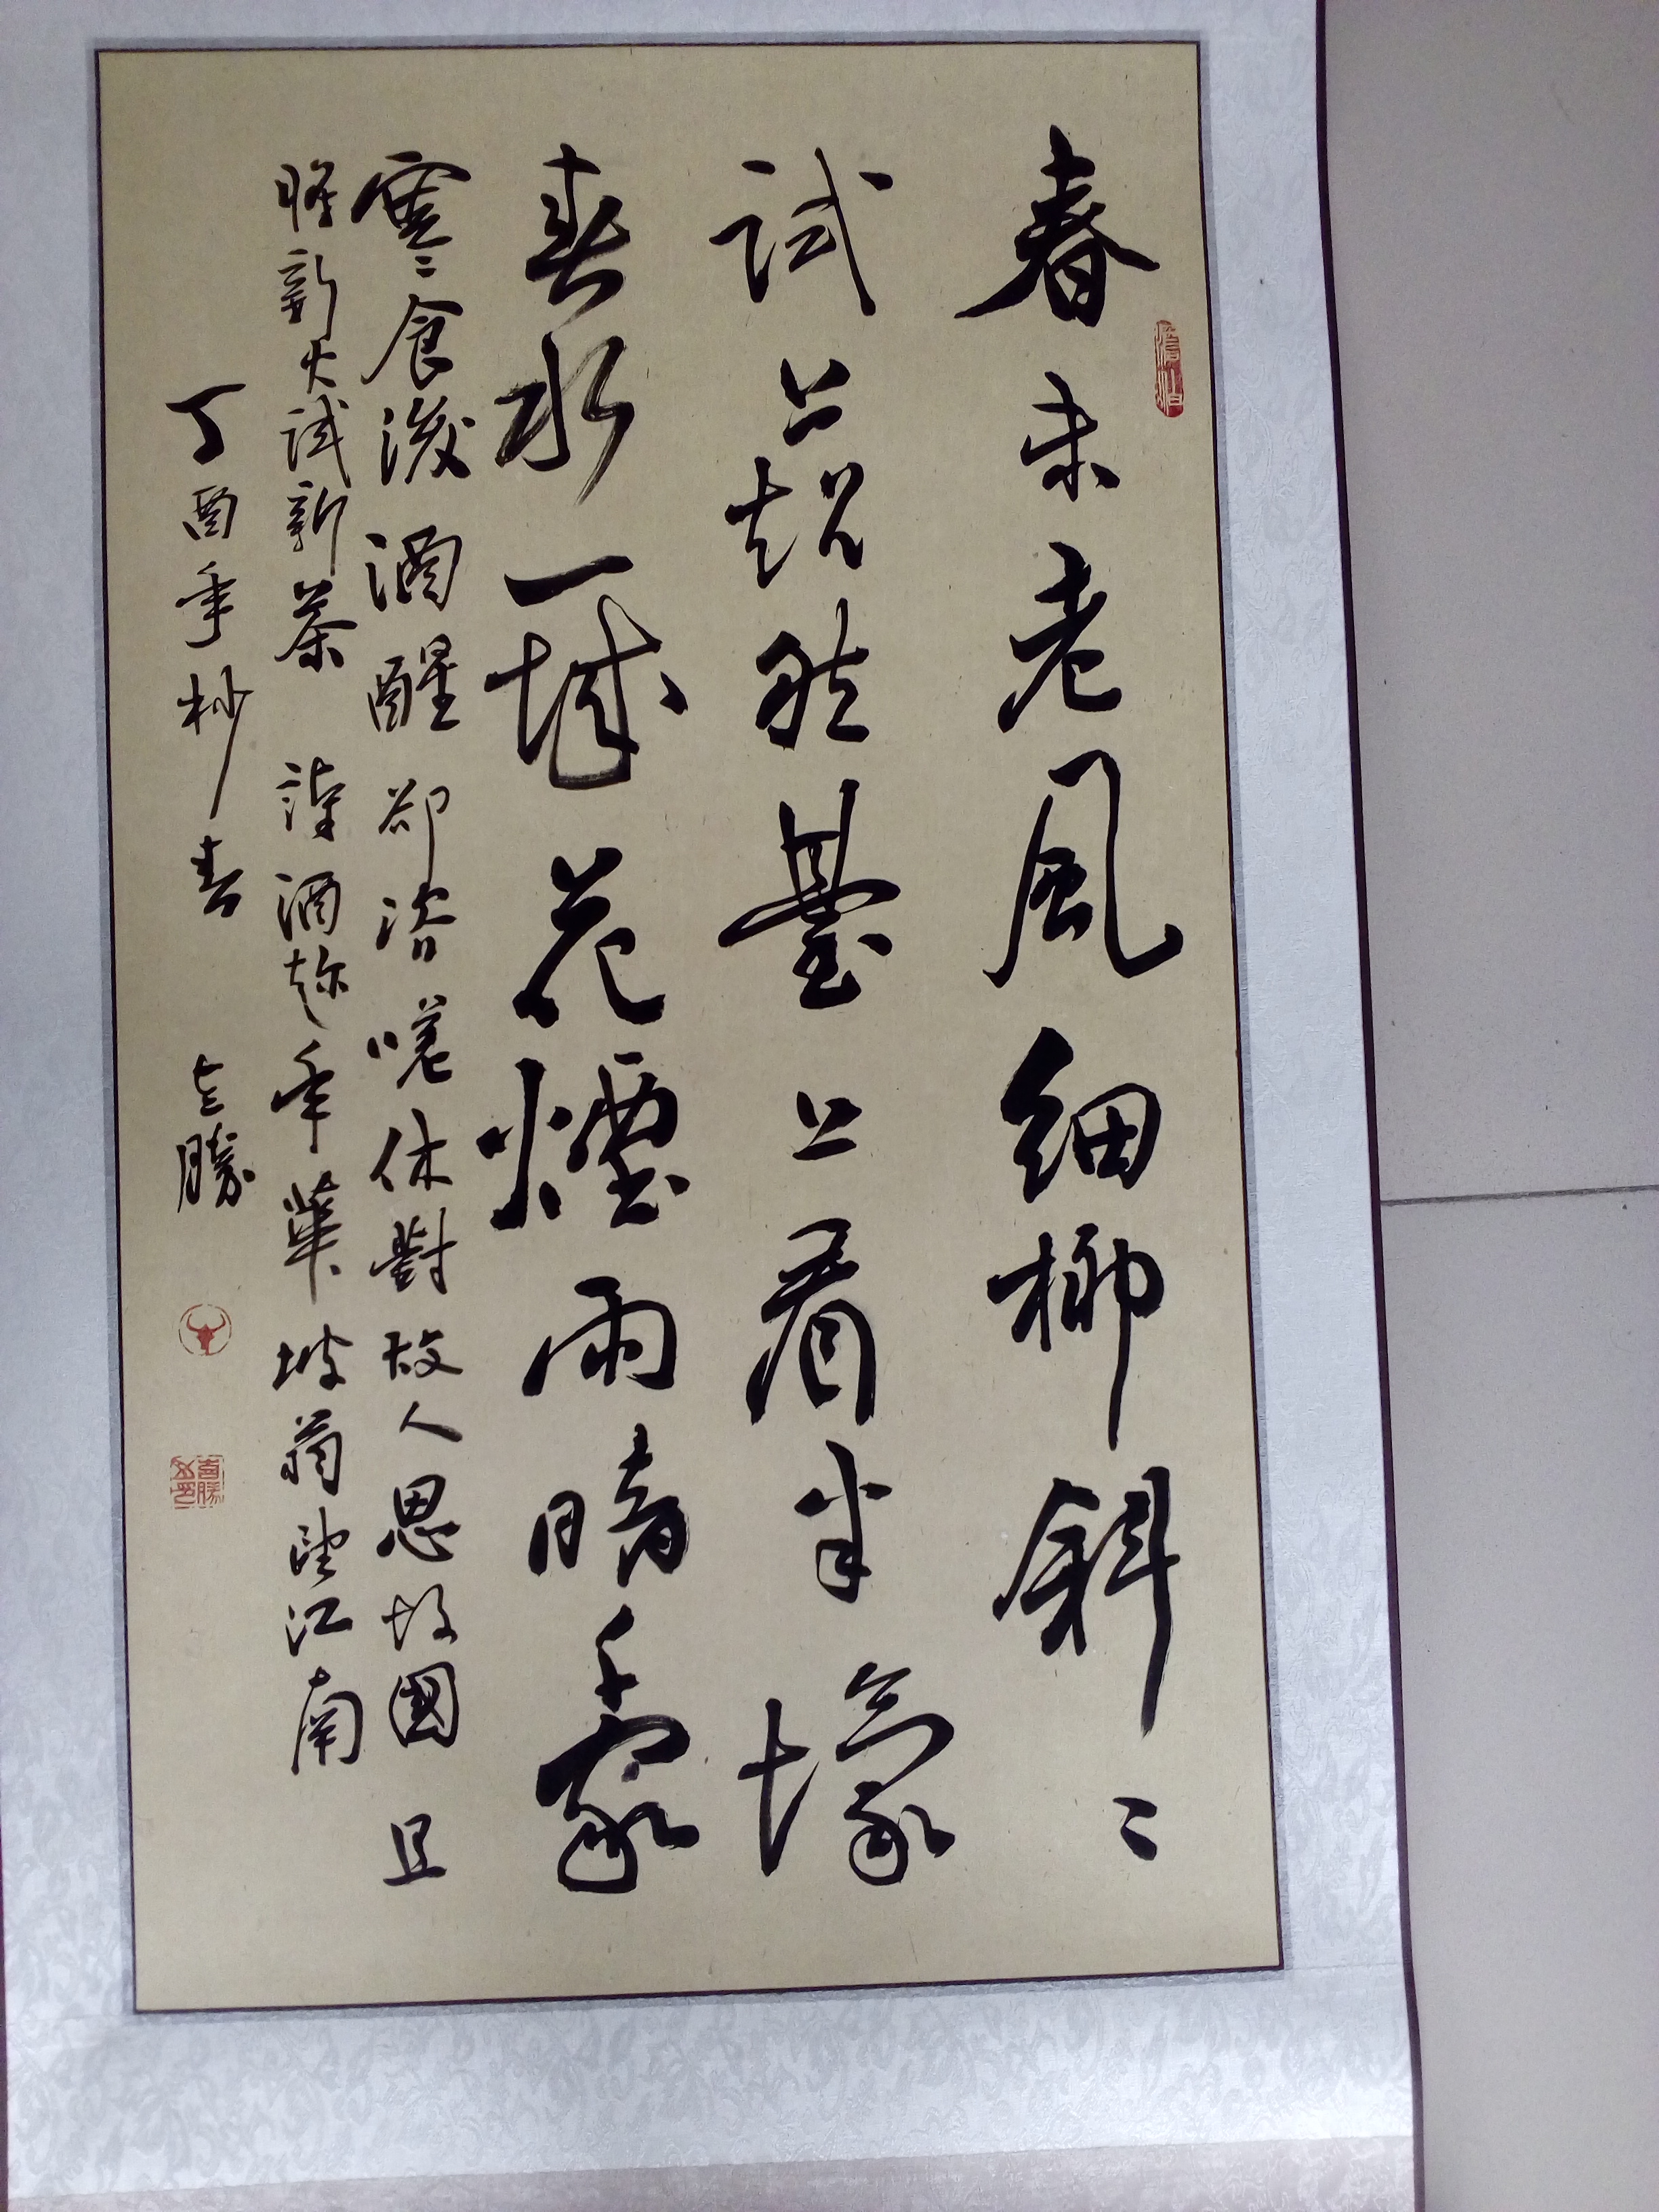 澹泊
春未老風細柳斜〻
試上超然臺上看半壕
春水一城花煙雨暗千家
寒〻食後酒醒卻咨嗟休對故人思故國且
將新火試新茶 詩酒趁年華 坡翁望江南
丁酉年杪春 勝